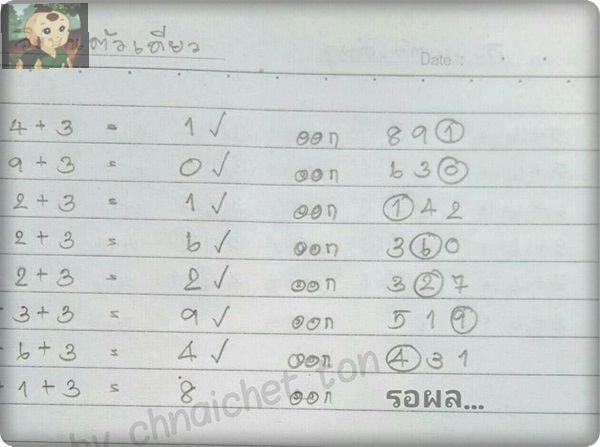 ตัวเดียว
Date :
4 + 3 = 1 ✓ ออก 8 9 1
9 + 3 = 0 ✓ ออก 6 3 0
2 + 3 = 1 ✓ ออก 1 4 2
2 + 3 = 6 ✓ ออก 3 6 0
2 + 3 = 2 ✓ ออก 3 2 7
3 + 3 = 9 ✓ ออก 5 1 9
6 + 3 = 4 ✓ ออก 4 3 1
1 + 3 = 8 ออก รอผล...
by chnaichet ton